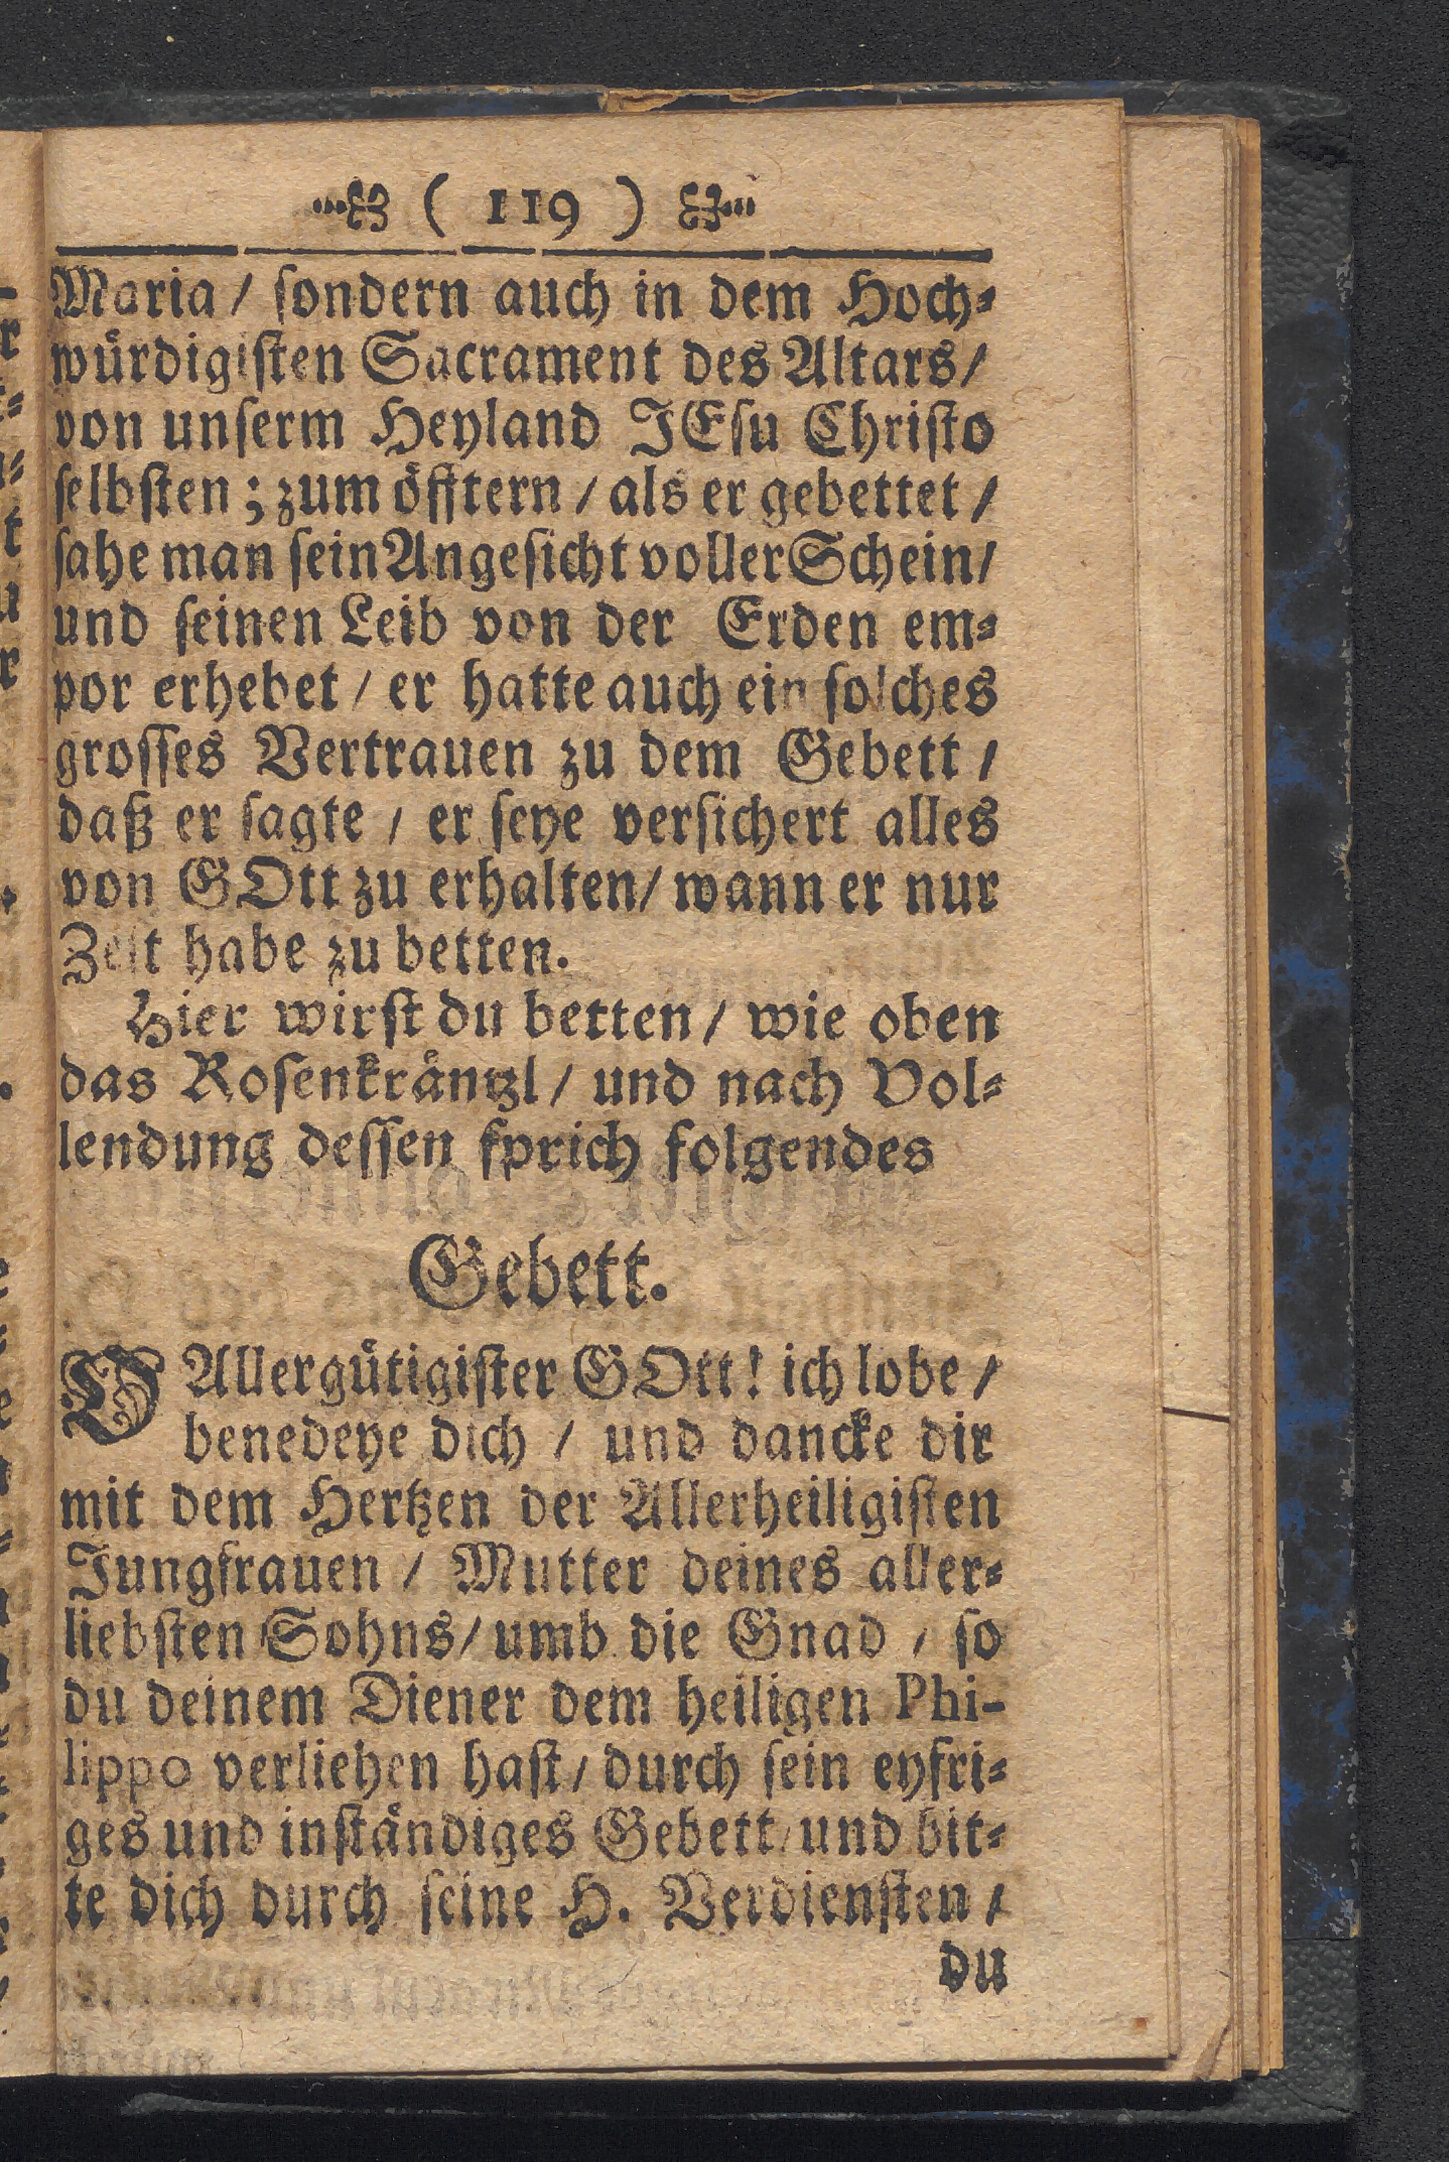 ( 119 )
Maria / ſondern auch in dem Hoch⸗
würdigiſten Sacrament des Altars /
von unſerm Heyland JEſu Chriſto
ſelbſten ; zum öfftern / als er gebettet /
ſahe man ſein Angeſicht voller Schein /
und ſeinen Leib von der Erden em⸗
por erhebet / er hatte auch ein ſolches
groſſes Vertrauen zu dem Gebett /
daß er ſagte / er ſeye verſichert alles
von GOtt zu erhalten / wann er nur
Zeit habe zu betten.
Hier wirſt du betten / wie oben
das Roſenkräntzl / und nach Vol⸗
lendung deſſen ſprich folgendes
Gebett.
O Allergütigiſter GOtt! ich lobe /
benedeye dich / und dancke dir
mit dem Hertzen der Allerheiligiſten
Jungfrauen / Mutter deines aller⸗
liebſten Sohns / umb die Gnad / ſo
du deinem Diener dem heiligen Phi-
lippo verliehen haſt / durch ſein eyfri⸗
ges und inſtändiges Gebett / und bit⸗
te dich durch ſeine H. Verdienſten /
du